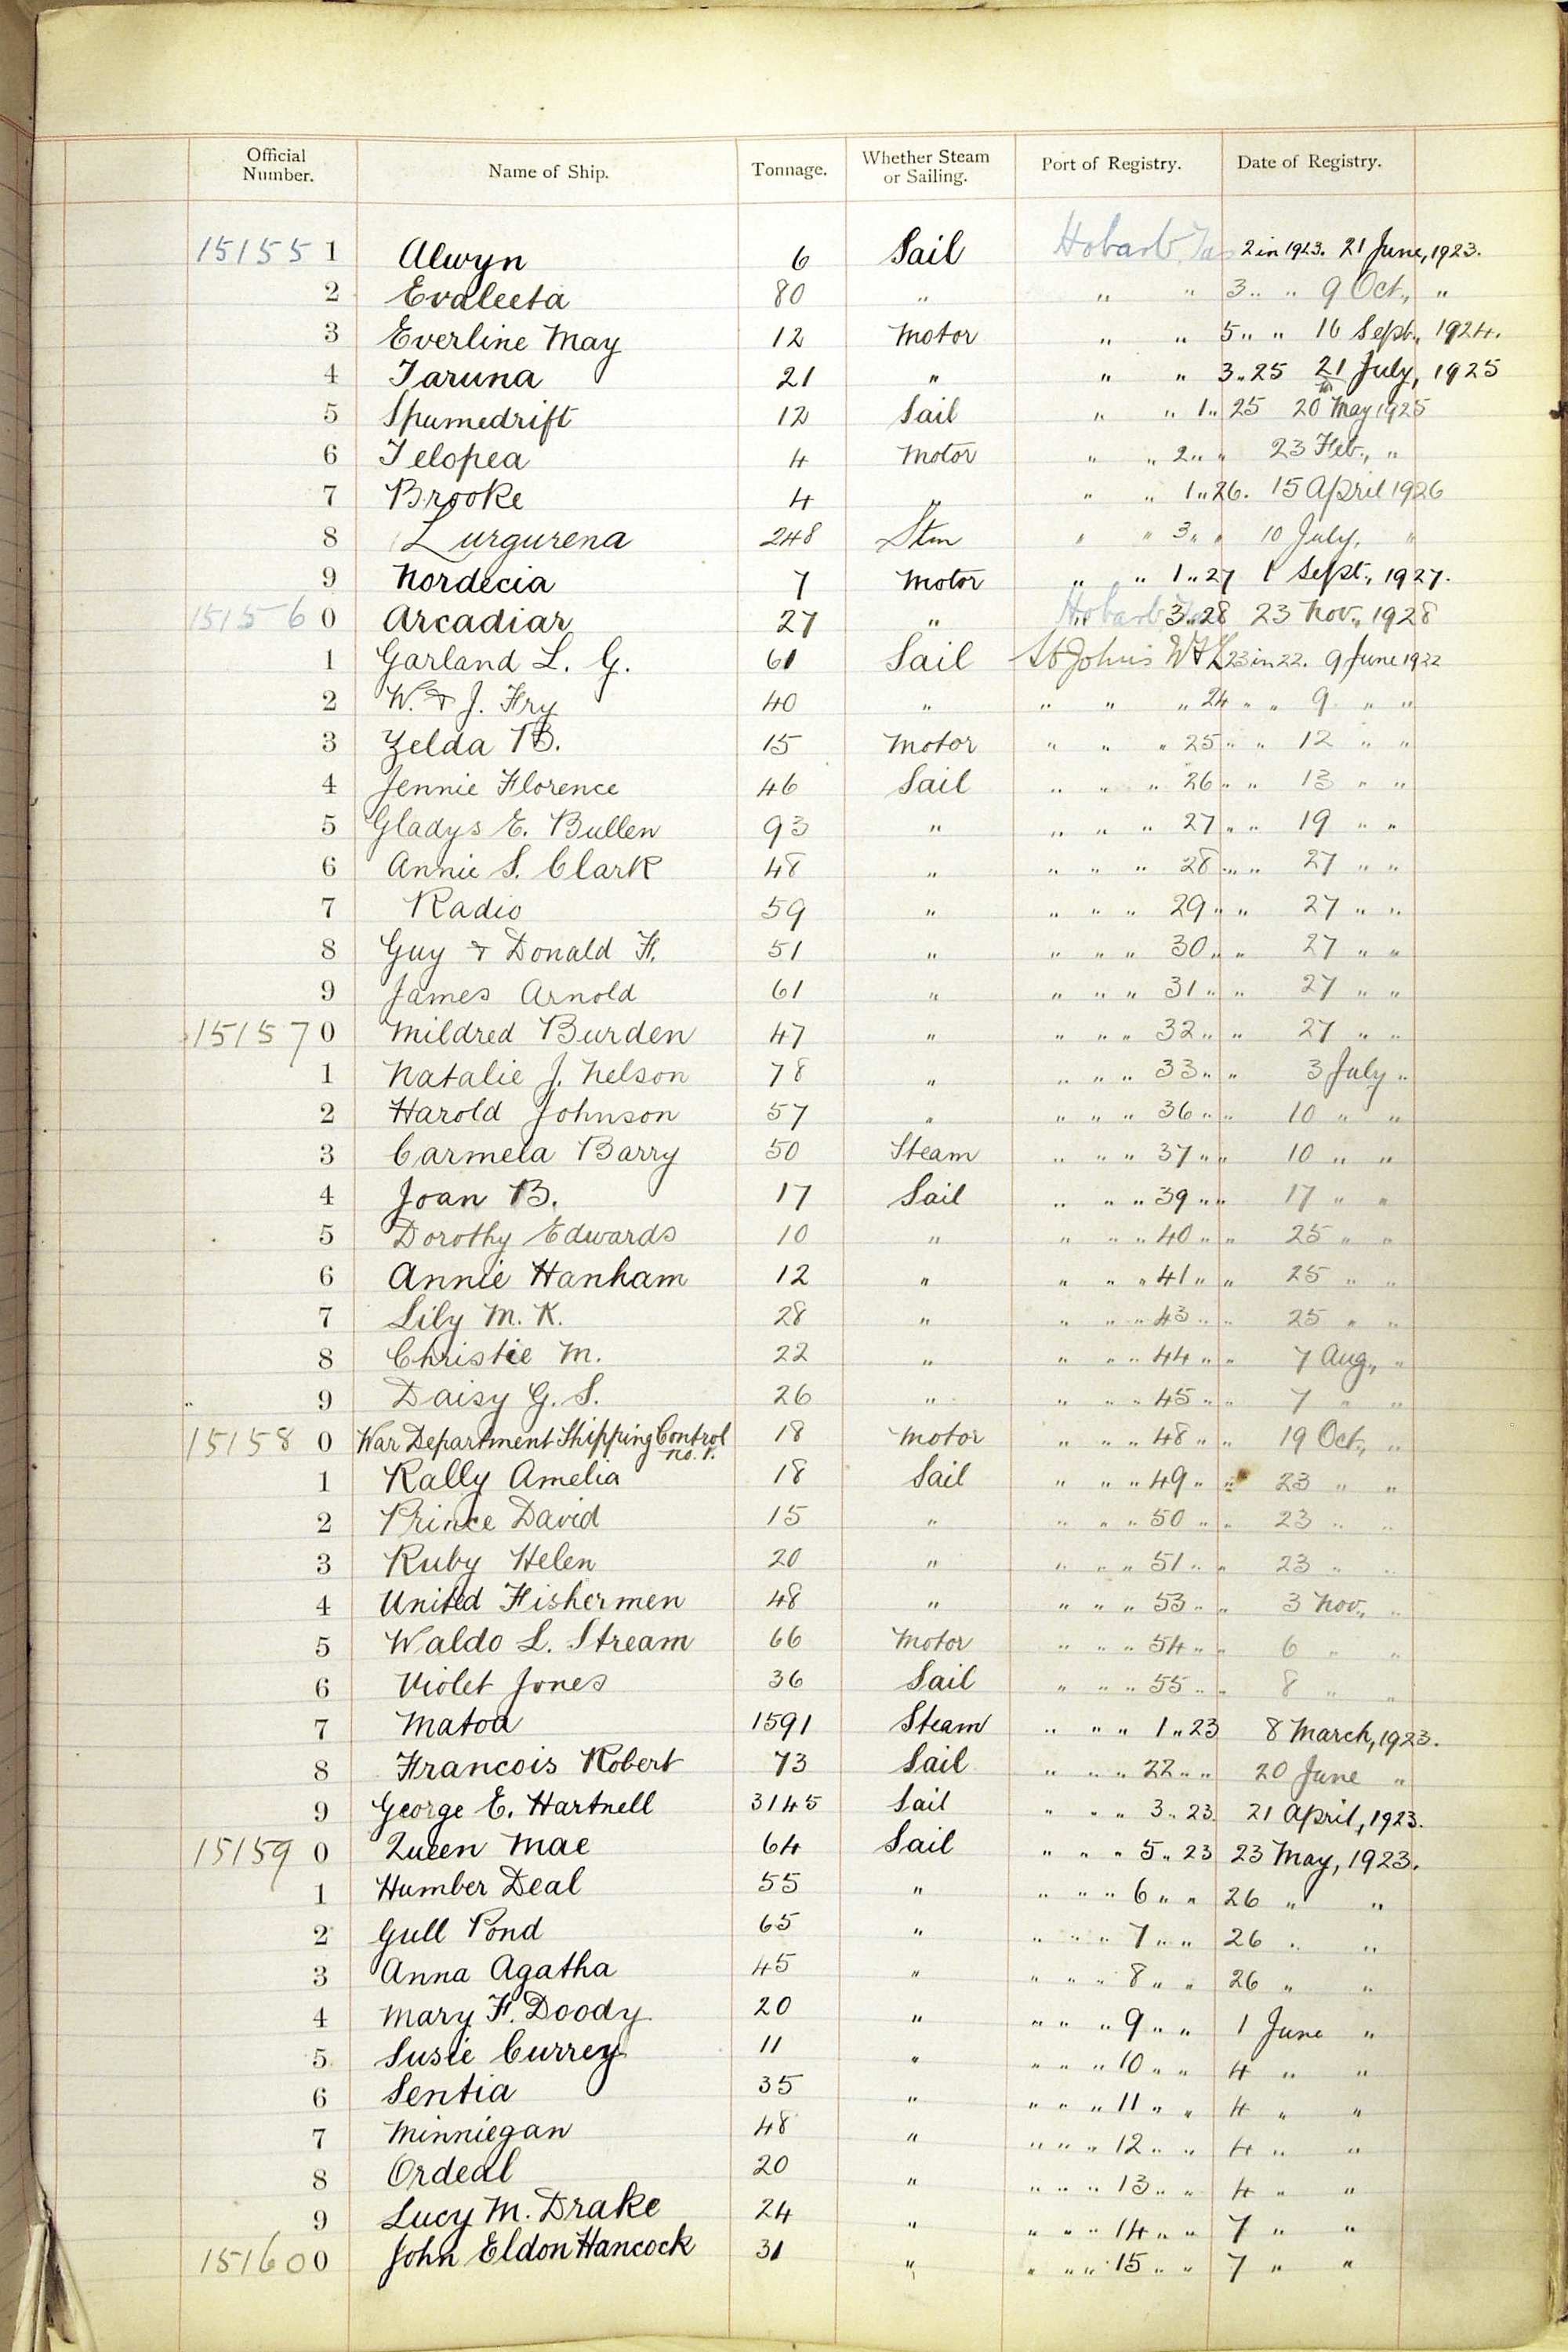 Official Number. Name of Ship. Tonnage. Whether Steam or Sailing. Port of Registry. Date of Registry.
15155 1 Alwyn 6 Sail Hobart Tas 2 in 1923. 21 June, 1923.
2 Evaleeta 80 " " " 3 " " 9 Oct., "
3 Everline May 12 Motor " " 5 " " 16 Sept., 1924.
4 Taruna 21 " " " 3 " 25 21 July, 1925
5 Spumedrift 12 Sail " " 1 " 25 20th May 1925
6 Telopea 4 Motor " " 2 " " 23 Feb., "
7 Brooke 4 " " " 1 " 26. 15 April 1926
8 Lurgurena 248 Stm " " 3 " " 10 July, "
9 Nordecia 7 Motor " " 1 " 27 1 Sept., 1927.
15156 0 Arcadiar 27 " Hobart 3 " 28 23 Nov., 1928
1 Garland L. G. 61 Sail St Johns NFL 23 in 22. 9 June 1922
2 W. & J. Fry 40 " " " " 24 " " 9 " "
3 Zelda B. 15 Motor " " " 25 " " 12 " "
4 Jennie Florence 46 Sail " " " 26 " " 13 " "
5 Gladys E. Bullen 93 " " " " 27 " " 19 " "
6 Annie S. Clark 48 " " " " 28 " " 27 " "
7 Radio 59 " " " " 29 " " 27 " "
8 Guy & Donald F. 51 " " " " 30 " " 27 " "
9 James Arnold 61 " " " " 31 " " 27 " "
15157 0 Mildred Burden 47 " " " " 32 " " 27 " "
1 Natalie J. Nelson 78 " " " " 33 " " 3 July "
2 Harold Johnson 57 " " " " 36 " " 10 " "
3 Carmela Barry 50 Steam " " " 37 " " 10 " "
4 Joan B. 17 Sail " " " 39 " " 17 " "
5 Dorothy Edwards 10 " " " " 40 " " 25 " "
6 Annie Hanham 12 " " " " 41 " " 25 " "
7 Lily M. K. 28 " " " " 43 " " 25 " "
8 Christie M. 22 " " " " 44 " " 7 Aug., "
9 Daisy G. S. 26 " " " " 45 " " 7 " "
15158 0 War Department Shipping Control No. 1. 18 Motor " " " 48 " " 19 Oct., "
1 Rally Amelia 18 Sail " " " 49 " " 23 " "
2 Prince David 15 " " " " 50 " " 23 " "
3 Ruby Helen 20 " " " " 51 " " 23 " "
4 United Fishermen 48 " " " " 53 " " 3 Nov., "
5 Waldo L. Stream 66 Motor " " " 54 " " 6 " "
6 Violet Jones 36 Sail " " " 55 " " 8 " "
7 Matoa 1591 Steam " " " 1 " 23 8 March, 1923.
8 Francois Robert 73 Sail " " " 22 " " 20 June "
9 George E. Hartnell 3145 Sail " " " 3 " 23. 21 April, 1923.
15159 0 Queen Mae 64 Sail " " " 5 " 23 23 May, 1923.
1 Humber Deal 55 " " " " 6 " " 26 " "
2 Gull Pond 65 " " " " 7 " " 26 " "
3 Anna Agatha 45 " " " " 8 " " 26 " "
4 Mary F. Doody 20 " " " " 9 " " 1 June "
5 Susie Currey 11 " " " " 10 " " 4 " "
6 Sentia 35 " " " " 11 " " 4 " "
7 Minniegan 48 " " " " 12 " " 4 " "
8 Ordeal 20 " " " " 13 " " 4 " "
9 Lucy M. Drake 24 " " " " 14 " " 7 " "
15160 0 John Eldon Hancock 31 " " " " 15 " " 7 " "